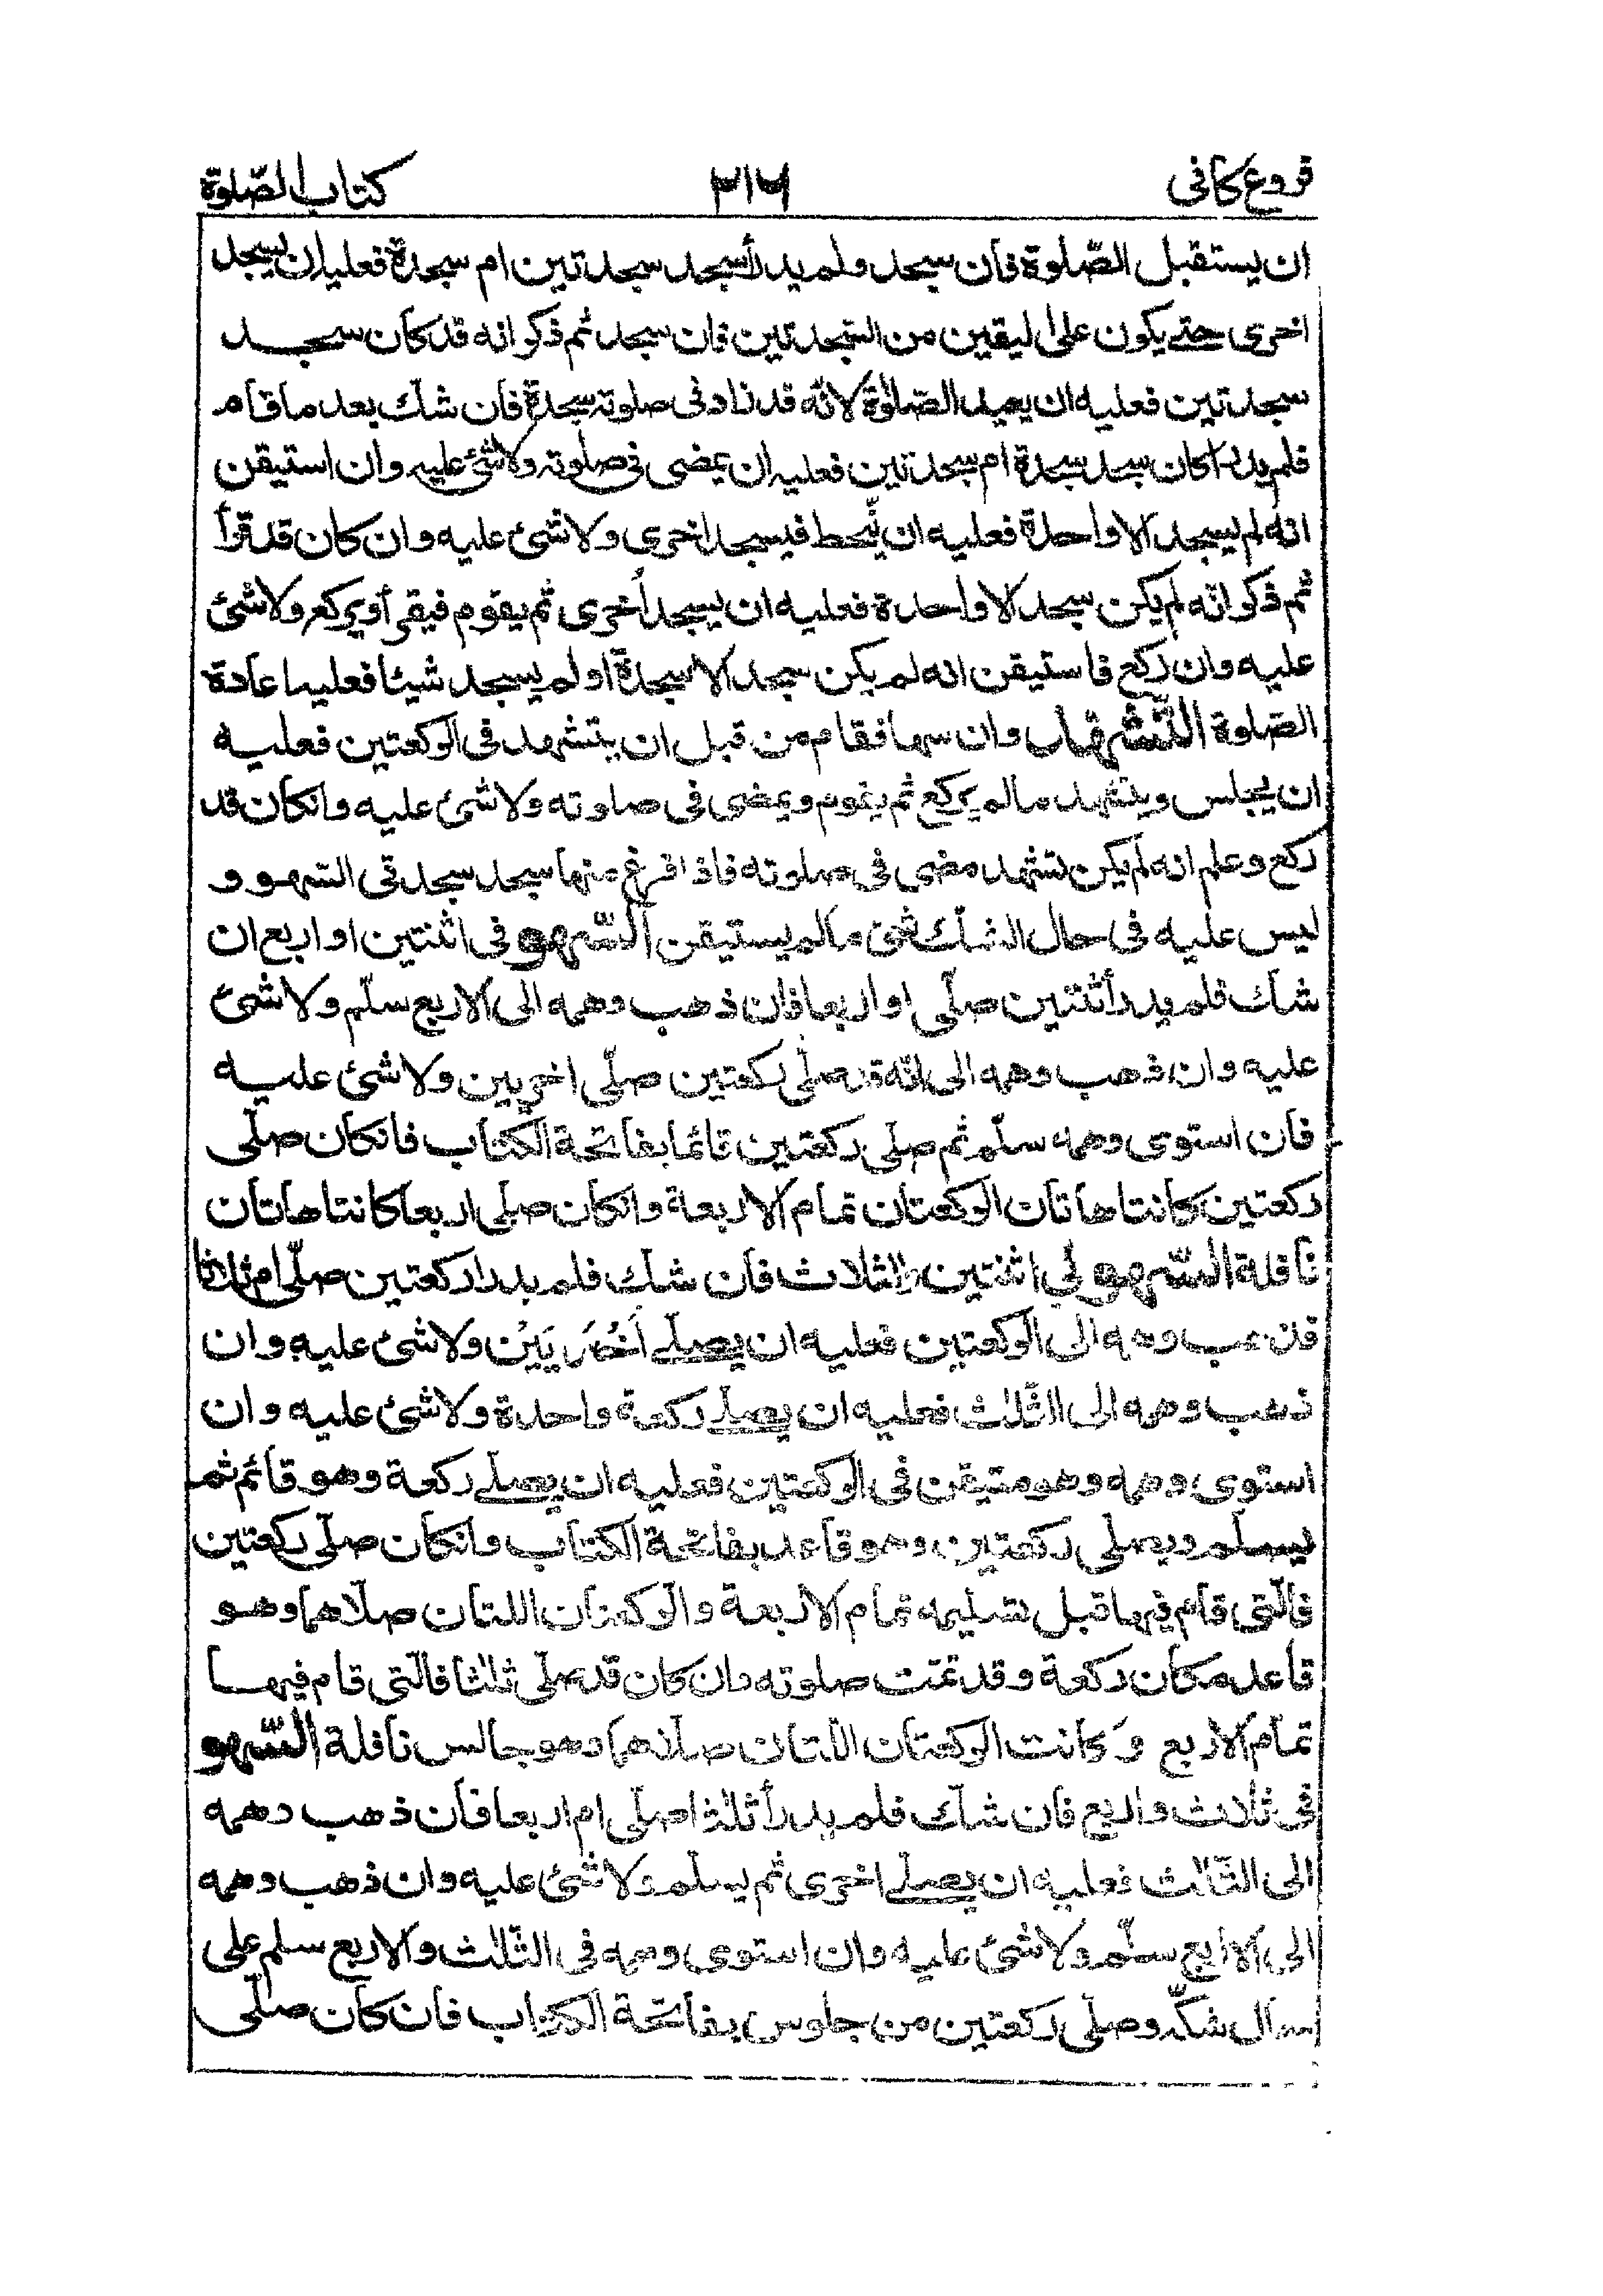 فروع كافى ٢١٦ كتاب الصّلوة
ان يستقبل الصّلوة فان سجد ولم يدر أسجد سجدتين ام سجدة فعليه ان يسجد
اخرى حتے يكون على اليقين من السّجدتين فان سجد ثم ذكر انه قد كان سجد
سجدتين فعليه ان يعيد الصّلوٰة لانّه قد زاد فى صلوته سجدة فان شكّ بعد ما قام
فلم يدر اكان سجد سجدة ام سجدتين فعليه ان يمضى فى صلوته ولا شئ عليه وان استيقن
انه لم يسجد الا واحدة فعليه ان ينّحط فيسجد اخرى ولا شئ عليه وان كان قد قرأ
ثم ذكر انّه لم يكن سجد الا واحدة فعليه ان يسجد أخرى ثم يقوم فيقرأ ويركع ولا شئ
عليه وان ركع فاستيقن انه لم يكن سجد الا سجدة او لم يسجد شيئا فعليه اعادة
الصّلوة التّشهّد وان سها فقام من قبل ان يتشهد فى الركعتين فعليه
ان يجلس ويتشهد ما لم يركع ثم يقوم ويمضى فى صلوته ولا شئ عليه وانكان قد
ركع وعلم انه لم يكن تشهد مضى فى صلوته فاذا فرغ منها سجد سجدتى السّهو و
ليس عليه فى حال الشك شئ ما لم يستيقن السّهو فى اثنتين او اربع ان
شك فلم يدر أثنتين صلّى او اربعا فان ذهب وهمه الى الاربع سلّم ولا شئ
عليه وان ذهب وهمه الى انّه قد صلّى ركعتين صلّى اخريين ولا شئ عليه
فان استوى وهمه سلّم ثم صلّى ركعتين قائما بفاتحة الكتاب فانكان صلّى
ركعتين كانتا هاتان الركعتان تمام الاربعة وانكان صلّى اربعا كانتا هاتان
نافلة السّهو فى اثنتين والثلاث فان شك فلم يدر اركعتين صلّى ام ثلاثا
وهمه الى الركعتين فعليه ان يصلّے أُخْرَيَيْن ولا شئ عليه وان
ذهب وهمه الى الثّلاث فعليه ان يصلّے ركعة واحدة ولا شئ عليه وان
استوى وهمه وهو متيقن فى الركعتين فعليه ان يصلّے ركعة وهو قائم ثم
يسلم ويصلى ركعتين وهو قاعد بفاتحة الكتاب وانكان صلّى ركعتين
فالّتى قام فيها قبل تسليمه تمام الاربعة والركعتان اللتان صلّاهما وهو
قاعد مكان ركعة وقد تمّت صلوته وان كان قد صلّى ثلٰثا فالّتى قام فيها
تمام الاربع و كانت الركعتان اللتان صلّاهما وهو جالس نافلة السّهو
فى ثلاث واربع فان شكّ فلم يدر أثلٰثا صلّى ام اربعا فان ذهب وهمه
الى الثّالث فعليه ان يصلّے اخرى ثم يسلّم ولا شئ عليه وان ذهب وهمه
الى الاربع سلّم ولا شئ عليه وان استوى وهمه فى الثّلاث والاربع سلم على
حال شكّه وصلّى ركعتين من جلوس بفاتحة الكتاب فان كان صلّى